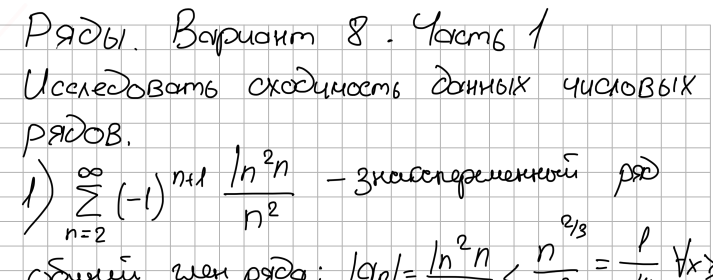 Ряды. Вариант 8. Часть 1
Исследовать сходимость данных числовых
рядов.
1) ∑_{n=2}^{∞} (-1)^{n+1} \frac{ln^2 n}{n^2} – знакопеременный ряд
общий член ряда: |a_n| = ln^2 n < n^{2/3} = 1 ∀x>